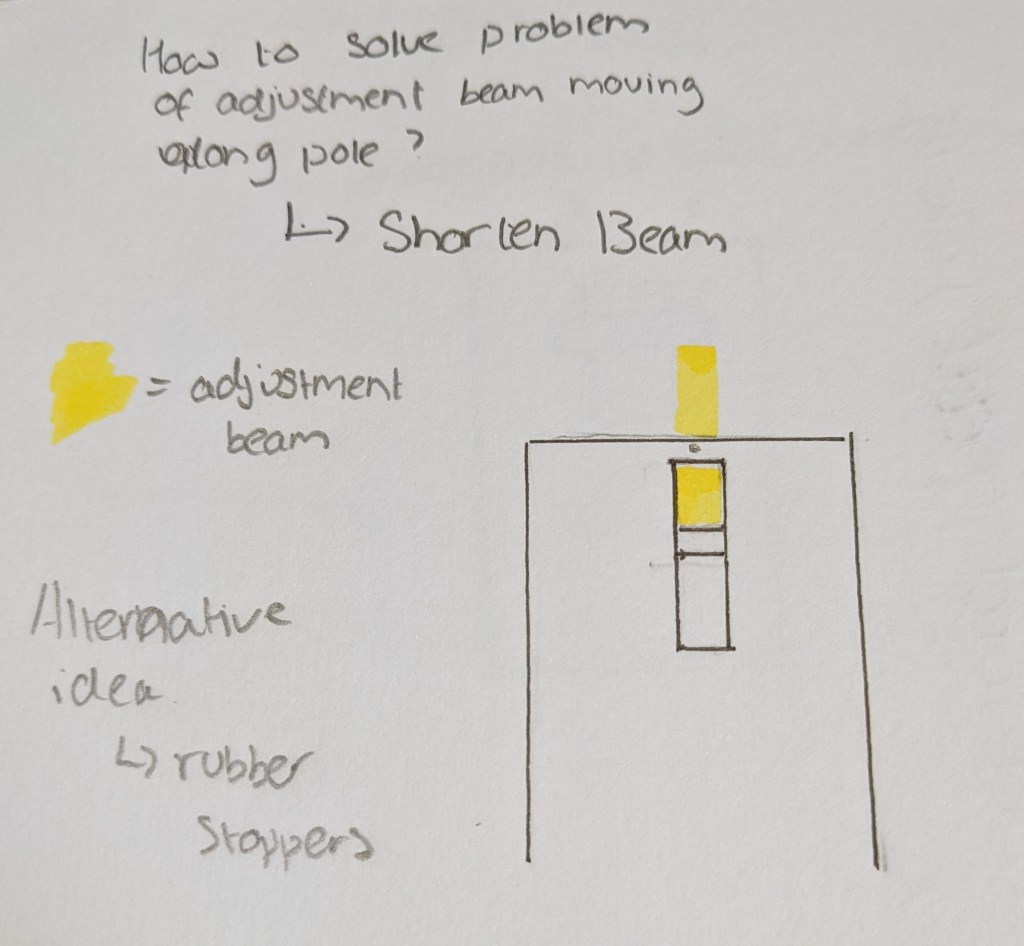 How to solve problem
of adjustment beam moving
along pole?
↳ Shorten Beam
= adjustment
beam
Alternative
idea
↳ rubber
stoppers